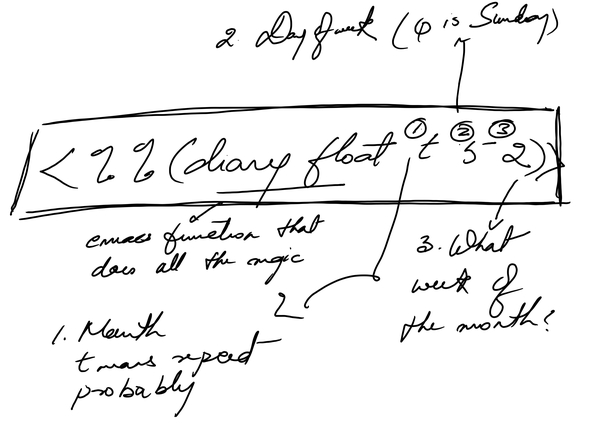 2. Day of week (0 is Sunday)
① ② ③
<%%(diary float t 5 2)>
emacs function that
does all the magic
3. What
week of
the month?
1. Month
t means repeat
probably